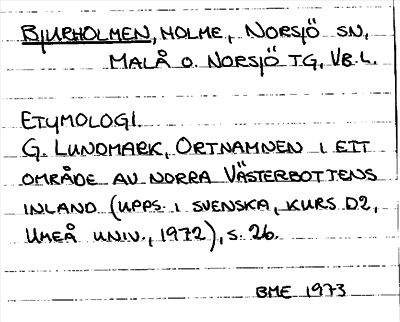 BJURHOLMEN, HOLME, NORSJÖ SN,
MALÅ O. NORSJÖ TG, VB. L.
ETYMOLOGI.
G. LUNDMARK, ORTNAMNEN I ETT
OMRÅDE AV NORRA VÄSTERBOTTENS
INLAND (UPPS. I SVENSKA, KURS D2,
UMEÅ UNIV., 1972), S. 26.
BME 1973